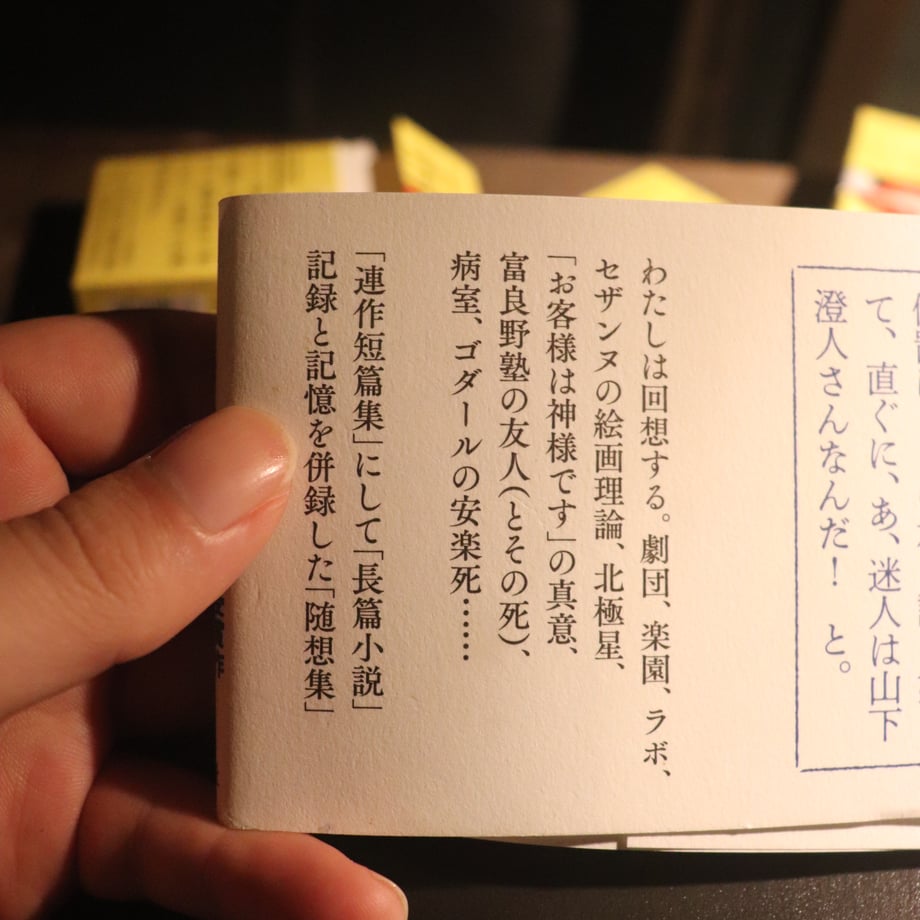 て、直ぐに、あ、迷人は山下
澄人さんなんだ！　と。
わたしは回想する。劇団、楽園、ラボ、
セザンヌの絵画理論、北極星、
「お客様は神様です」の真意、
富良野塾の友人（とその死）、
病室、ゴダールの安楽死……
「連作短篇集」にして「長篇小説」
記録と記憶を併録した「随想集」